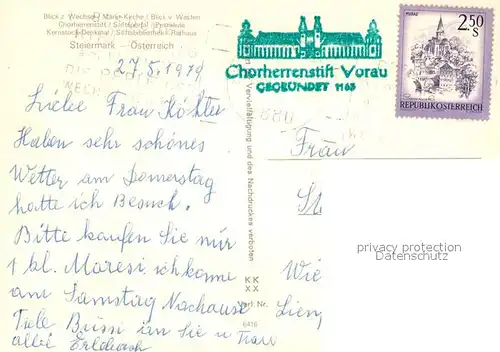 Blick z. Wechsel / Markt-Kirche / Blick v. Westen
Chorherrenstift / Stiftsportal
Kernstock-Denkmal / Stiftsbibliothek / Rathaus
Steiermark - Österreich
27.5.1979
Liebe Frau Köhler
Haben sehr schönes
Wetter am Donnerstag
hatte ich Besuch.
Bitte kaufen Sie mir
1 kl. Maresi ich komme
am Samstag Nachause
Viele Bussi an Sie u Frau
Vervielfältigung und des Nachdruckes verboten
KK
XX
Verl. Nr.
6416
Chorherrenstift Vorau
GEGRÜNDET 1163
MURAU
2.50
S
REPUBLIK ÖSTERREICH
Frau
St
Wie
privacy protection
Datenschutz